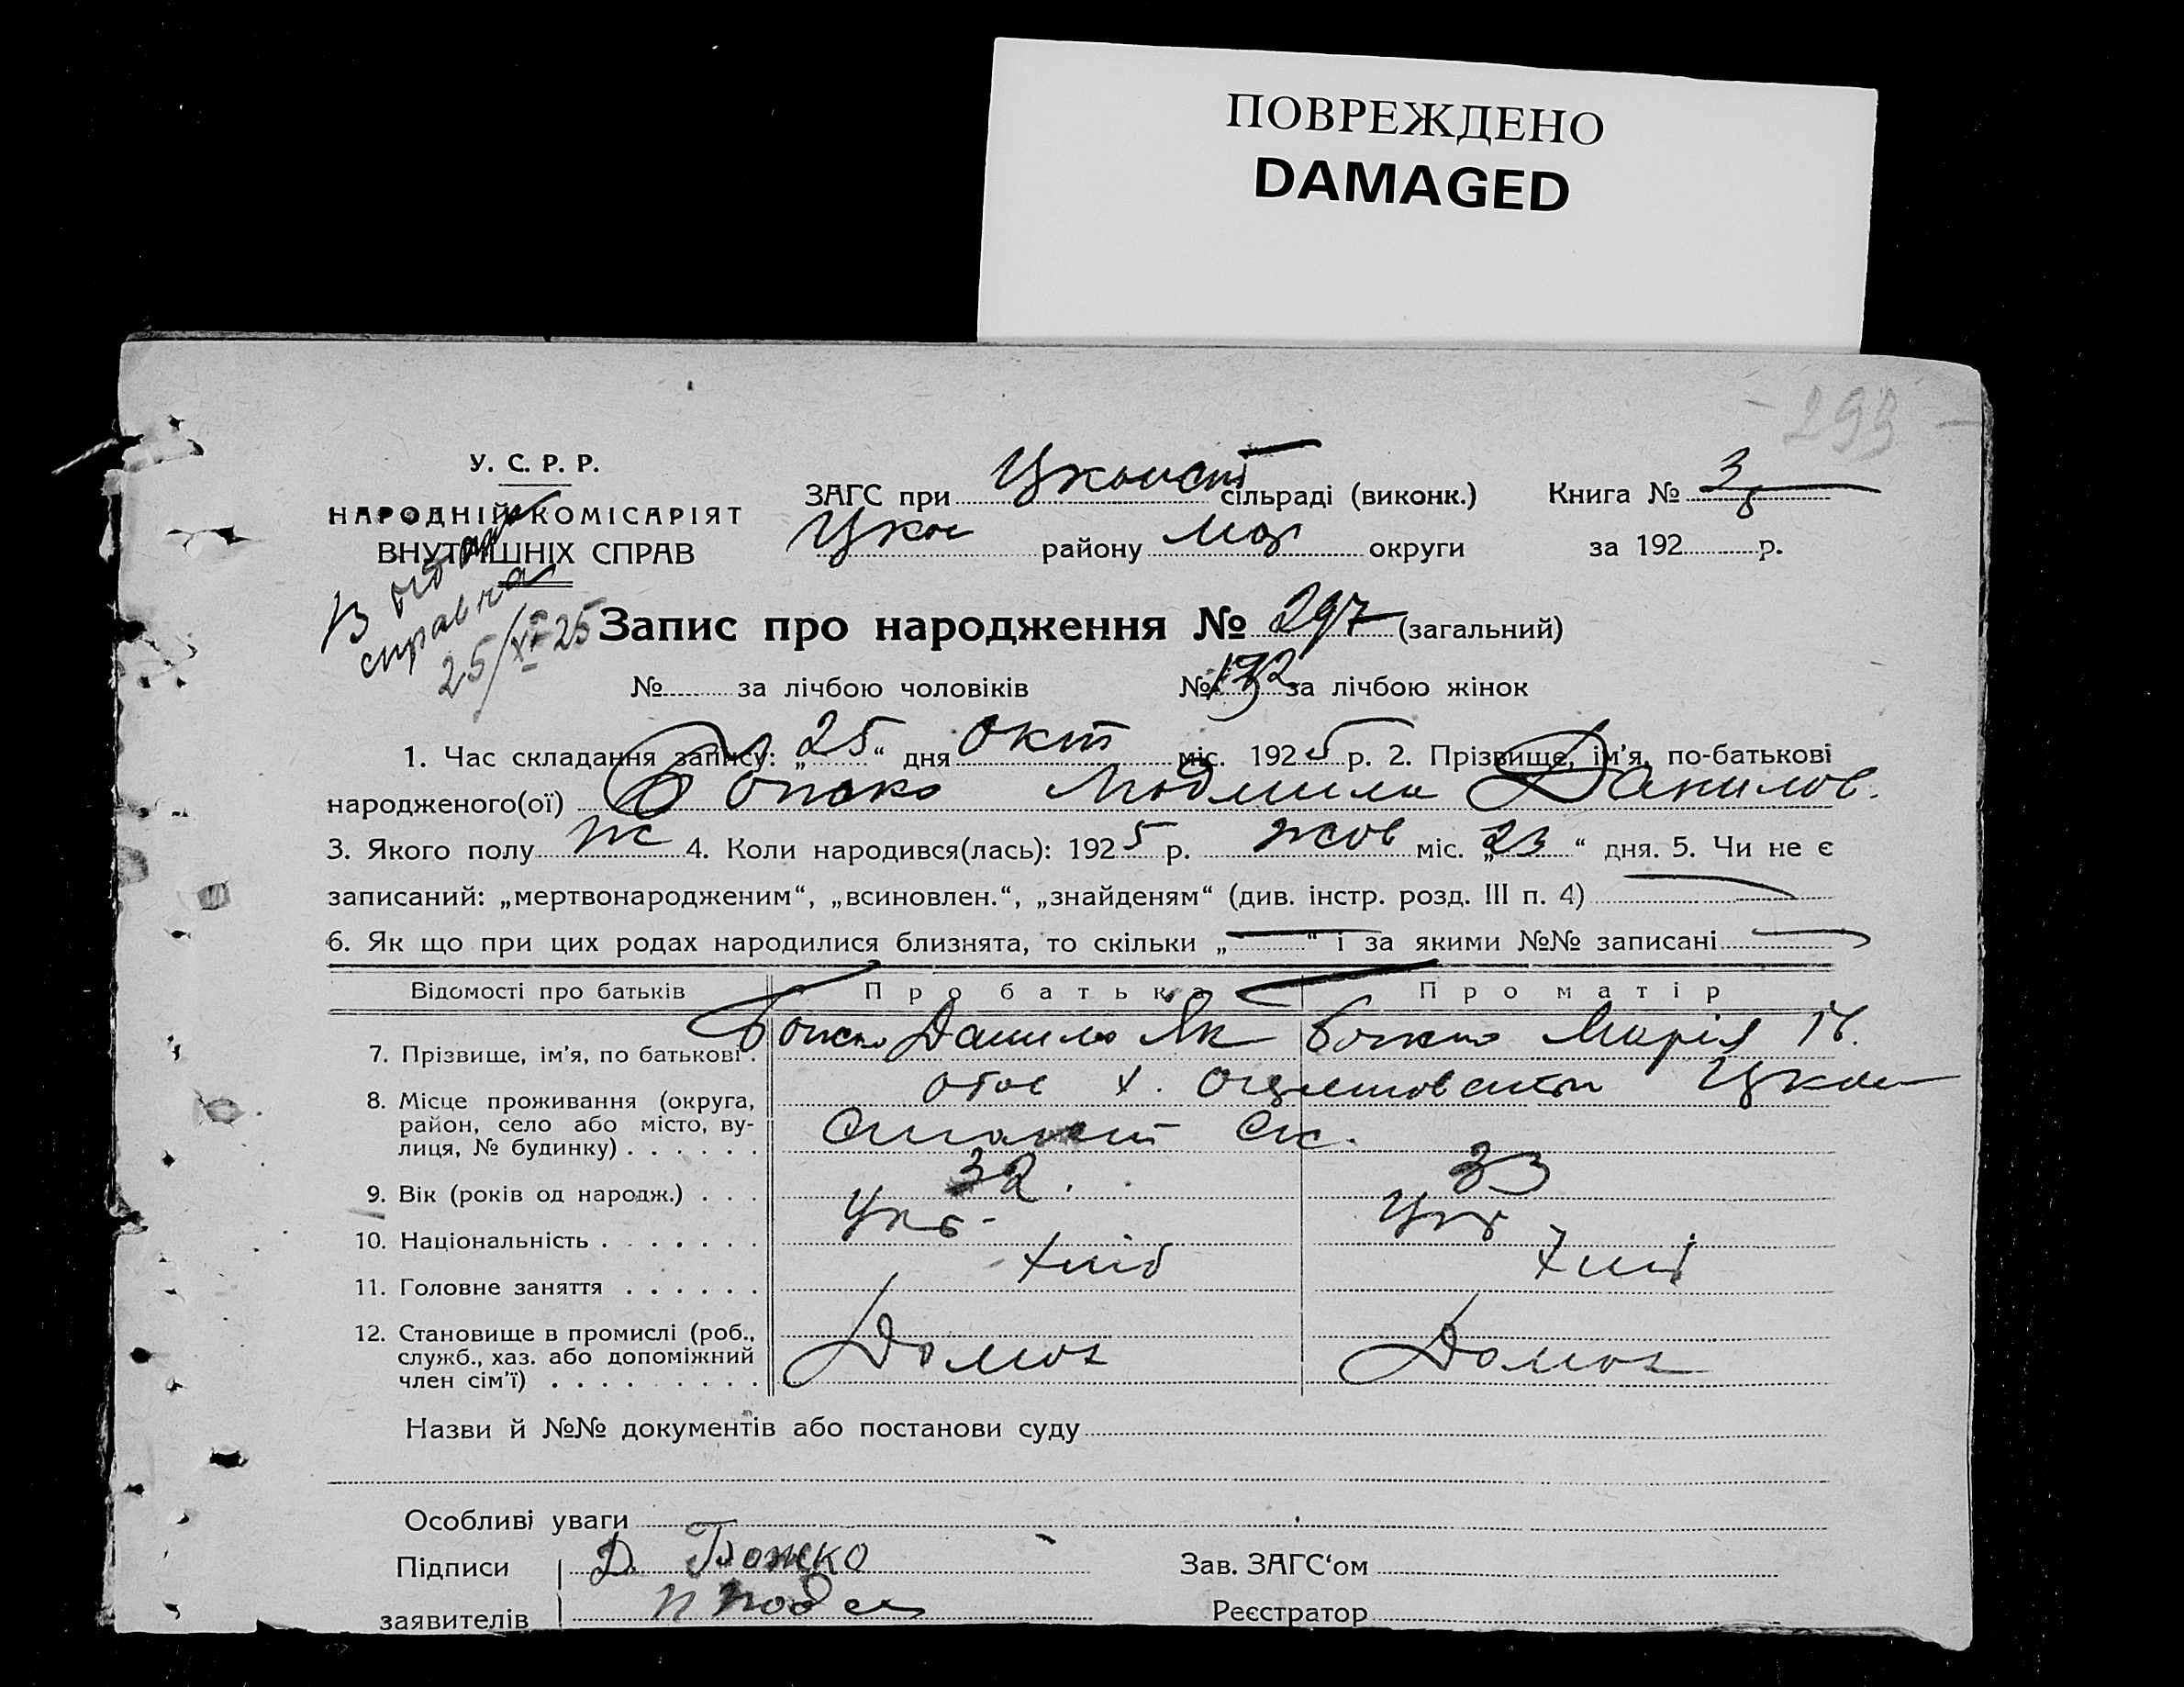 ПОВРЕЖДЕНО
DAMAGED
293
У. С. Р. Р.
НАРОДНІЙ КОМІСАРІЯТ
ВНУТРІШНІХ СПРАВ
ЗАГС при сільраді (виконк.) Книга № 3
району округи за 192 р.
справка
25/XI-25
Запис про народження № 297 (загальний)
№ за лічбою чоловіків № 132 за лічбою жінок
1. Час складання запису: „25“ дня окт міс. 1925 р. 2. Прізвище, ім'я, по-батькові
народженого(ої) Божко Людмила Данилов.
3. Якого полу ж 4. Коли народився(лась): 1925 р. жов міс. „23“ дня. 5. Чи не є
записаний: „мертвонародженим“, „всиновлен.“, „знайденям“ (див. інстр. розд. III п. 4)
6. Як що при цих родах народилися близнята, то скільки „—“ і за якими №№ записані
Відомості про батьків Про батька Про матір
7. Прізвище, ім'я, по батькові. Божко Данило Як Божко Марія Ів.
8. Місце проживання (округа,
район, село або місто, ву-
лиця, № будинку) . . . . . .
9. Вік (років од народж.) . . . 32. 33
10. Національність . . . . . . . Укр. Укр
11. Головне заняття . . . . . . хліб хліб
12. Становище в промислі (роб.,
служб., хаз. або допоміжний
член сім'ї) . . . . . . . . . Домох Домох
Назви й №№ документів або постанови суду
Особливі уваги
Підписи Д. Божко Зав. ЗАГС'ом
заявителів Реєстратор